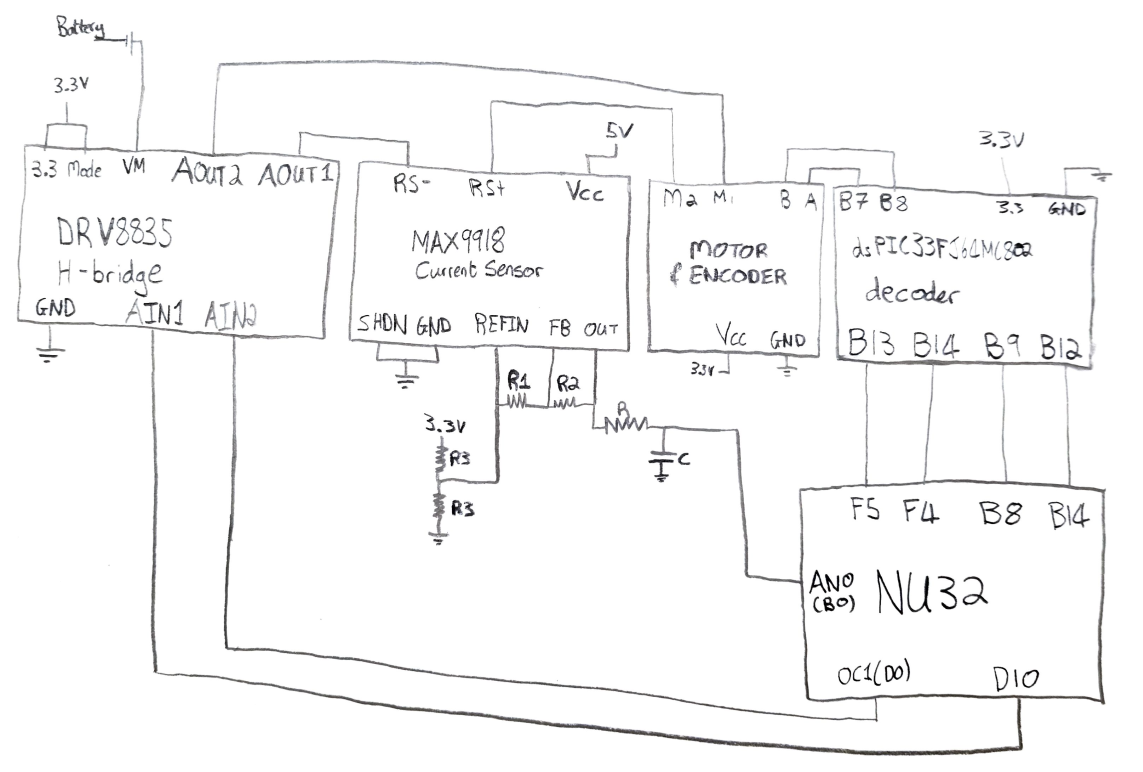 Battery
3.3V
3.3 Mode VM AOUT2 AOUT1
DRV8835
H-bridge
GND AIN1 AIN2
5V
RS- RS+ Vcc
MAX9918
Current Sensor
SHDN GND REFIN FB OUT
R1 R2
3.3V
R3
R3
R
C
M2 M1 B A
MOTOR
& ENCODER
Vcc GND
3.3V
3.3V
B7 B8 3.3 GND
dsPIC33FJ64MC802
decoder
B13 B14 B9 B12
F5 F4 B8 B14
AN0
(B0)
NU32
OC1(D0) D10